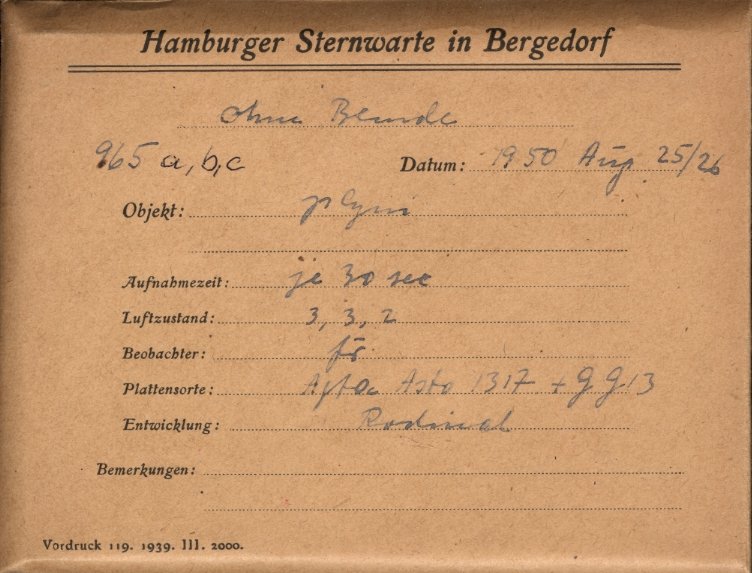 Hamburger Sternwarte in Bergedorf
ohne Blende
965 a, b, c Datum: 1950 Aug 25/26
Objekt:
Aufnahmezeit: je 30 sec
Luftzustand: 3, 3, 2
Beobachter:
Plattensorte: Agfa Astro 1317 + GG13
Entwicklung: Rodinal
Bemerkungen:
Vordruck 119. 1939. III. 2000.